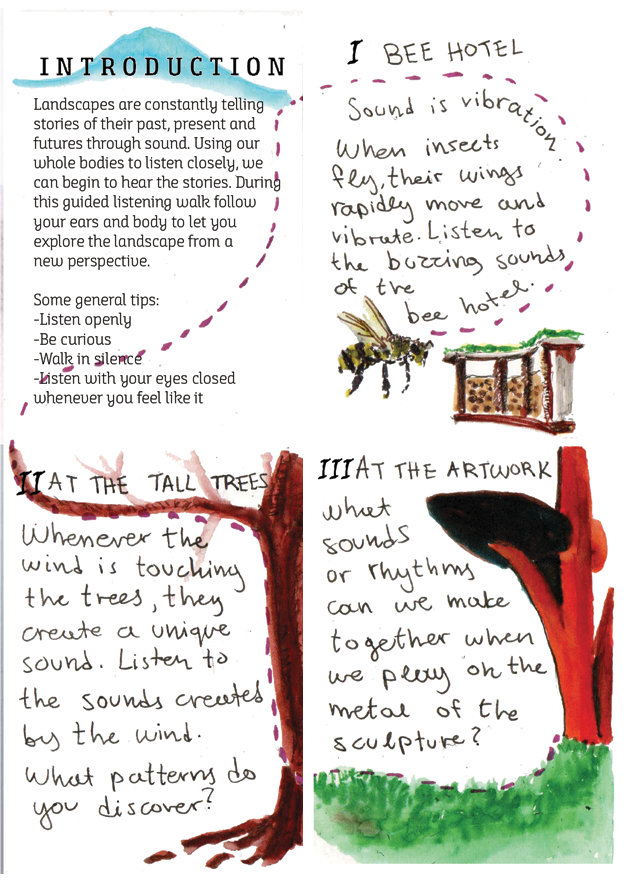 INTRODUCTION
Landscapes are constantly telling
stories of their past, present and
futures through sound. Using our
whole bodies to listen closely, we
can begin to hear the stories. During
this guided listening walk follow
your ears and body to let you
explore the landscape from a
new perspective.
Some general tips:
-Listen openly
-Be curious
-Walk in silence
-Listen with your eyes closed
whenever you feel like it
I BEE HOTEL
Sound is vibration.
When insects
fly, their wings
rapidly move and
vibrate. Listen to
the buzzing sounds
of the
bee hotel.
II AT THE TALL TREES
Whenever the
wind is touching
the trees, they
create a unique
sound. Listen to
the sounds created
by the wind.
What patterns do
you discover?
III AT THE ARTWORK
What
sounds
or rhythms
can we make
together when
we play on the
metal of the
sculpture?